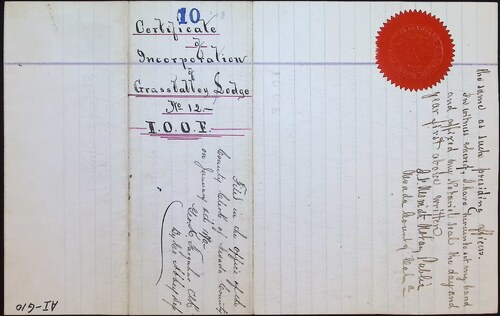 10
Certificate
of
Incorporation
of
Grass Valley Lodge
No 12.-
I.O.O.F.
Filed in the office of the
County Clerk of Nevada County
on January
Clerk
By
Deputy
the same as such presiding officer.
In witness whereof I have hereunto set my hand
and affixed my Notarial Seal the day and
year first above written
Notary Public
Nevada County
AI-G10